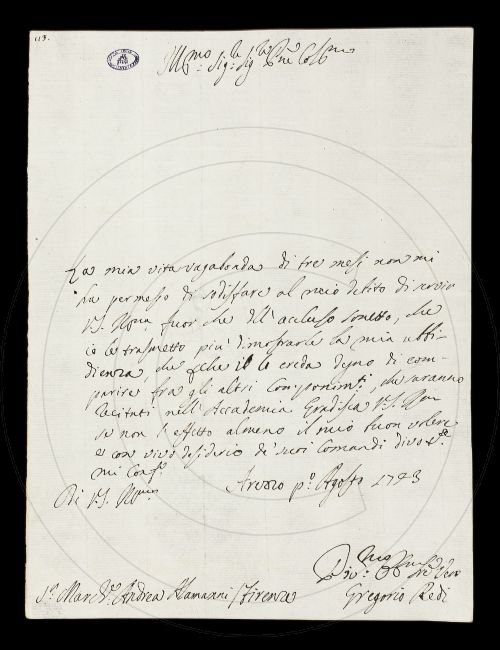 113.
Ill.mo Sig.re Sig.re P.ne Col.mo
La mia vita vagabonda di tre mesi non mi
ha permesso di sodisfare al mio debito di servir
V.S. Ill.ma fuor che dell'accluso sonetto, che
io le trasmetto più dimostrarle la mia ubbi-
dienza, che perche il le creda degno di com-
parire fra gli altri Componimti, che saranno
recitati nell'Accademia. Gradisca V.S. Ill.ma
se non l'effetto almeno il mio buon volere
e con vivo desiderio de' suoi comandi
mi conf.o
Di V.S. Ill.ma
Arezzo p.o Agosto 1743
S.r Marc. Andrea Alamanni / Firenze
Gregorio Redi